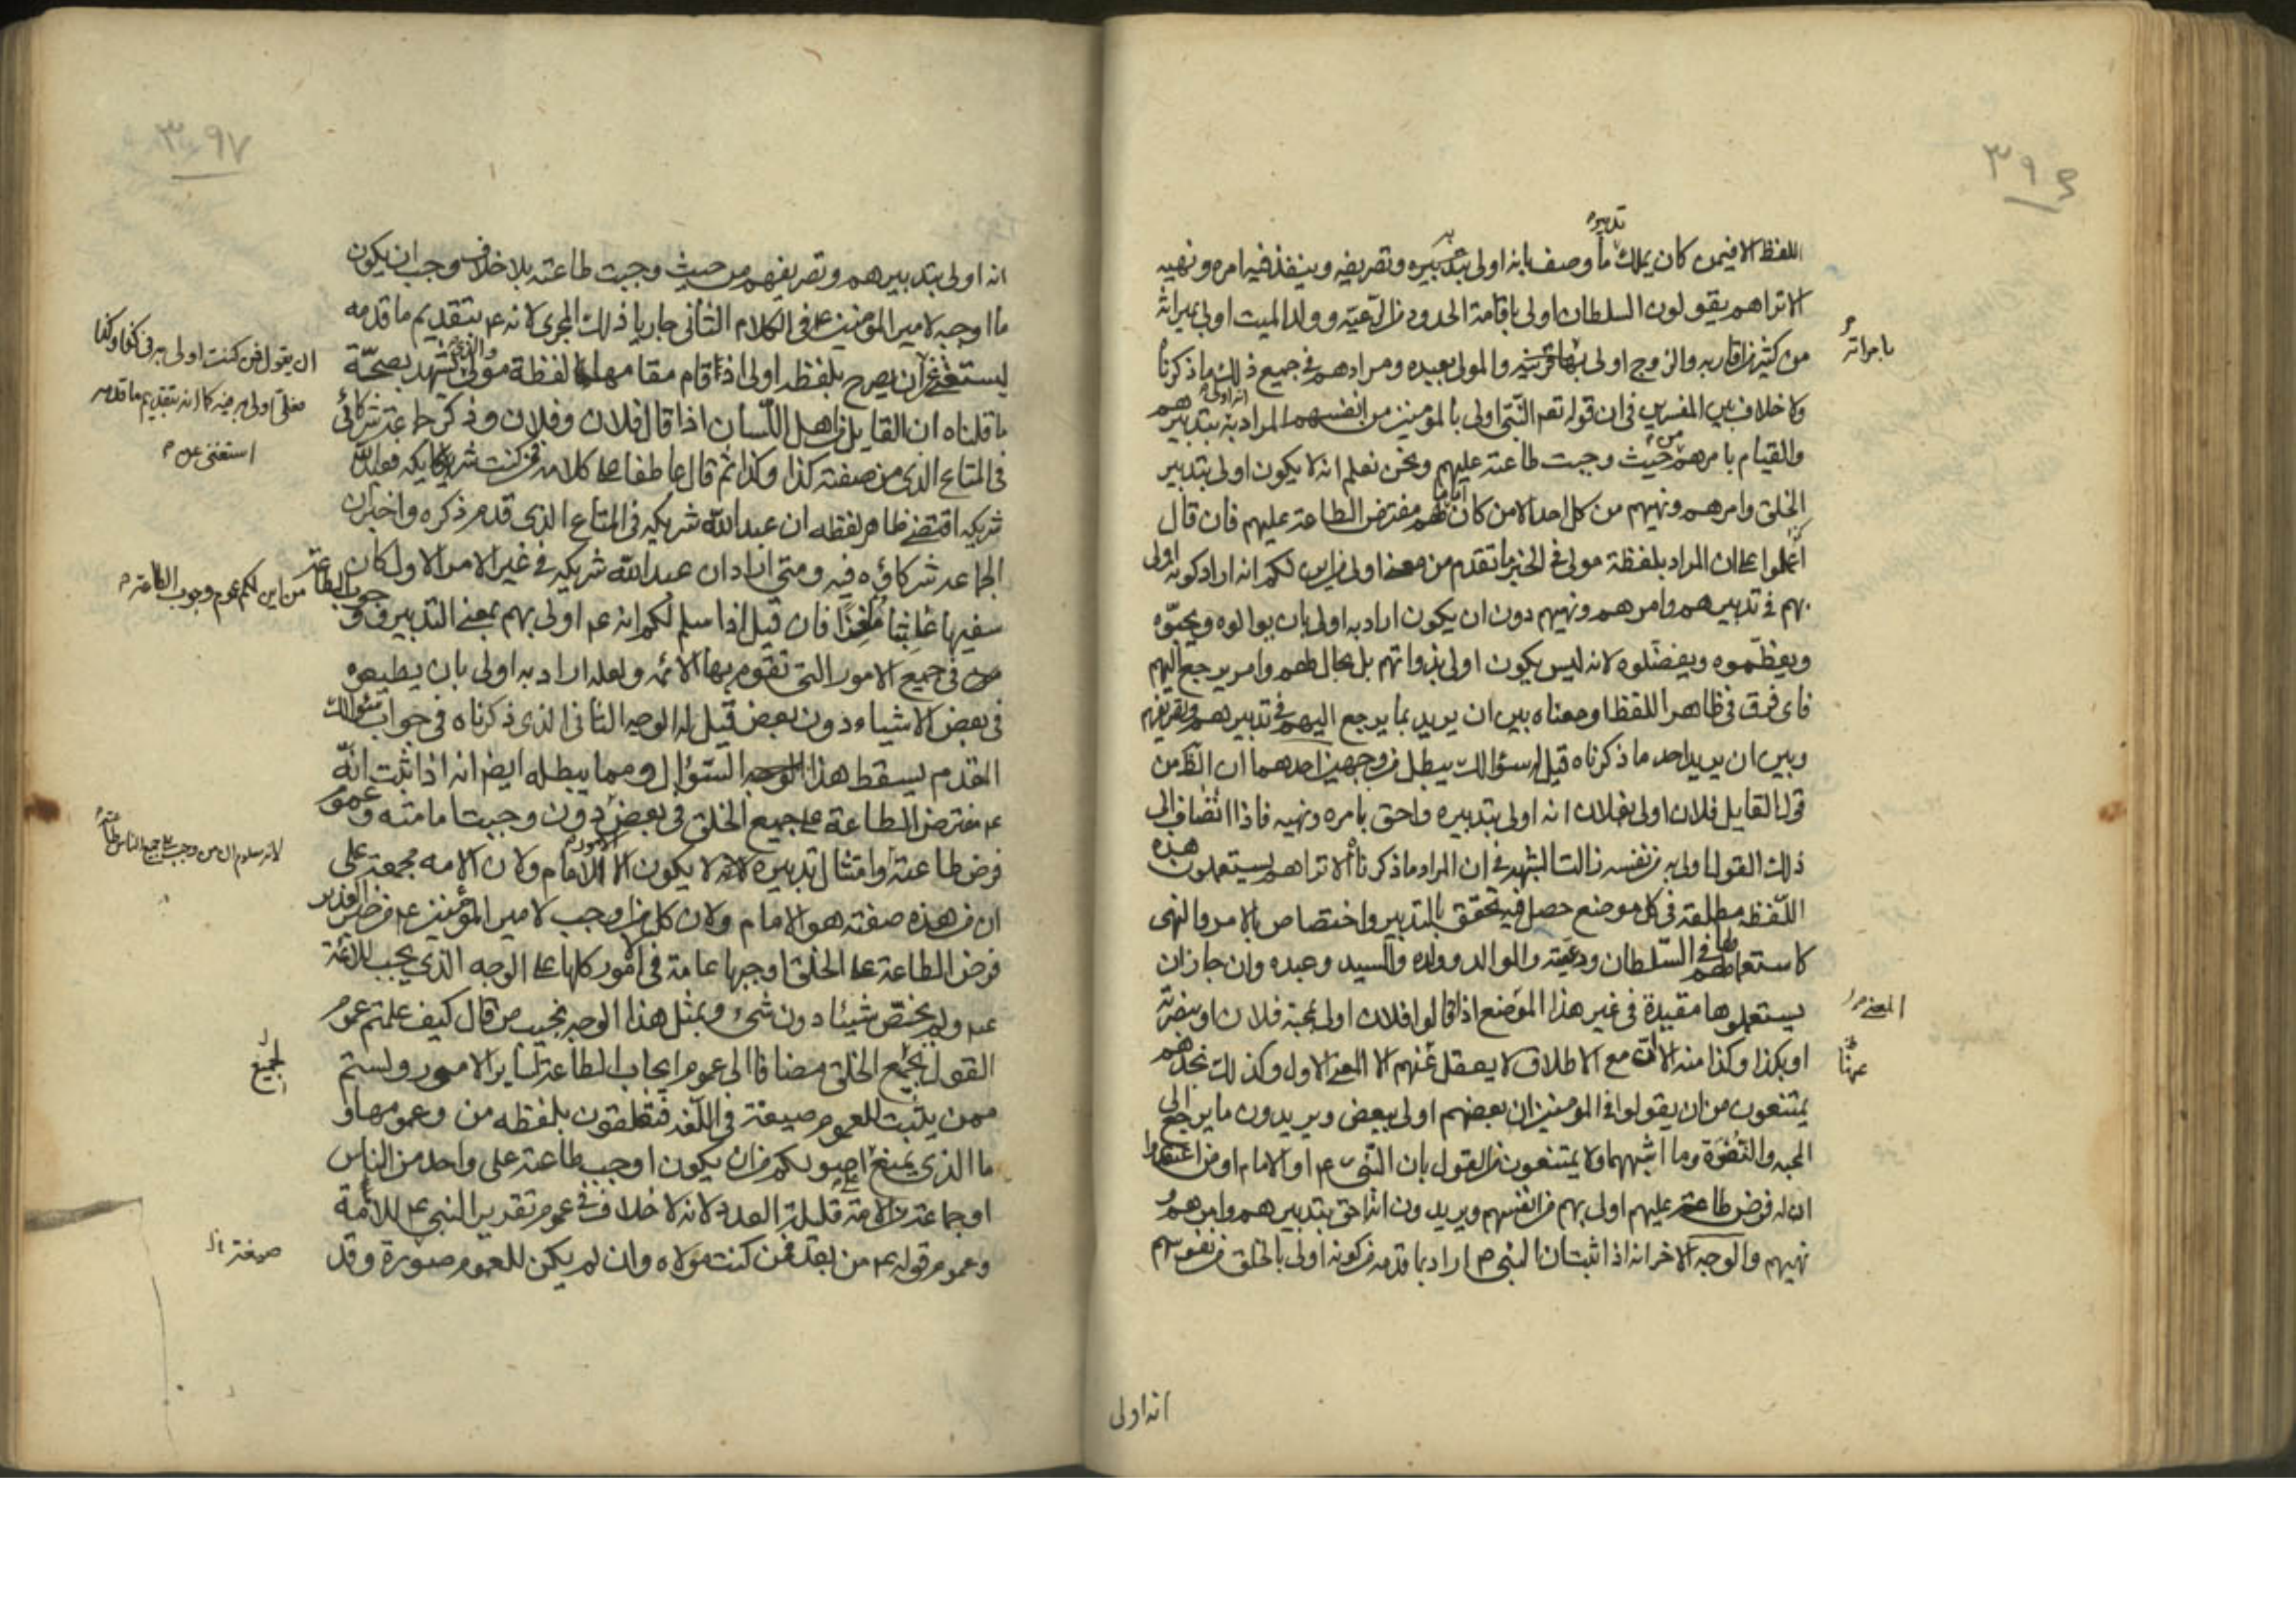 ٣٩٦
تدبيره
اللفظ الا فيمن كان يملك ما وصف بانه اولى بتدبيره وتصريفه وينفذ فيه امره ونهيه
الا تراهم يقولون السلطان اولى باقامة الحدود من الرعيّة وولد الميت اولى بميراثه
من كثير من اقاربه والزوج اولى والمولى بعبيده ومرادهم في جميع ذلك ما ذكرناه
بامراته
ولا خلاف بين المفسرين في ان قوله تعم النّبي اولى بالمؤمنين من انفسهم المراد به انه اولى بتدبيرهم
والقيام بامرهم من حيث وجبت طاعته عليهم ونحن نعلم انه لا يكون اولى بتدبير
الخلق وامرهم ونهيهم من كل احد الا من كان لهم مفترض الطاعة عليهم فان قال
اعملوا على ان المراد بلفظة مولى في الخبر ما تقدم من معنى اولى من اين لكم انه اراد كونه اولى
بهم في تدبيرهم وامرهم ونهيهم دون ان يكون اراد به اولى بان يوالوه ويحبّوه
ويعظّموه ويفضّلوه لانه ليس يكون اولى بذواتهم بل بحال لهم وامر يرجع اليهم
فاى فرق في ظاهر اللفظ او معناه بين ان يريد بما يرجع اليهم في تدبيرهم وتصريفهم
وبين ان يريد احد ما ذكرناه قيل له سؤالك يبطل من وجهين احدهما ان الظ من
قول القايل فلان اولى بفلان انه اولى بتدبيره واحق بامره ونهيه فاذا انضاف الى
ذلك القول اولى به من نفسه زالت الشبهة في ان المراد ما ذكرناه الا تراهم يستعملون هذه
اللّفظة مطلقة في كل موضع حصل فيه تحقق بالتدبير واختصاص بالامر والنهى
كاستعمالهم لها في السّلطان ورعيته والوالد وولده والسيد وعبده وان جاز ان
يستعملوها مقيدة في غير هذا الموضع اذا قالوا فلان اولى بمحبة فلان او بنصرته
المعنى
او بكذا وكذا منه الا ان مع الاطلاق لا يعقل عنهم الا المعنى الاول وكذلك نجدهم
يمتنعون من ان يقولوا في المؤمنين ان بعضهم اولى ببعض ويريدون ما يرجع الى
المحبة والنصرة وما اشبههما ولا يمتنعون من القول بان النّبي ص او الامام او من اعتقدوا
ان له فرض طاعة عليهم اولى بهم من انفسهم ويريدون انه احق بتدبيرهم وامرهم و
نهيهم والوجه الاخر انه اذا ثبت ان النبي ص اراد بما قدمه من كونه اولى بالخلق من نفوسهم
انه اولى
٣٩٧
انه اولى بتدبيرهم وتصريفهم من حيث وجبت طاعته بلا خلاف وجب ان يكون
ما اوجبه لامير المؤمنين ع في الكلام الثاني جاريا ذلك المجرى لانه ع بتقديم ما قدمه
يستغنى عن ان يصرح بلفظه اولى اذا اقام مقامها لفظة مولى والذي يشهد بصحّة
ان يقول فمن كنت اولى به في كذا وكذا
فعلى اولى به فيه كما انه بتقديم ما قدمه
استغنى عن
ما قلناه ان القايل من اهل اللّسان اذا قال فلان وفلان وذكر جماعة شركائى
في المتاع الذى من صفته كذا وكذا ثم قال عاطفا على كلامه فمن كنت شريكه فعبد اللّه
شريكه اقتضى ظاهر لفظه ان عبد اللّه شريكه في المتاع الذى قدم ذكره واخبر ان
الجماعة شركاؤه فيه ومتى اراد ان عبد اللّه شريكه في غير الامر الاول كان
سفيها عابثا ملغزا فان قيل اذا سلم لكم انه ع اولى بهم بمعنى التدبير ووجوب الطاعة
من اين لكم عموم وجوب الطاعة
في جميع الامور التي تقوم بها الائمه ولعله اراد به اولى بان يطيعوه
في بعض الاشياء دون بعض قيل له الوجه الثاني الذى ذكرناه في جواب سؤالك
المقدم يسقط هذا السّؤال ومما يبطله ايضا انه اذا ثبت انّه
ع مفترض الطاعة على جميع الخلق في بعض الامور دون وجبت امامته وعموم
لانه معلوم ان من وجب على جميع الناس طاعته
فرض طاعته وامتثال تدبيره لانه لا يكون الا الامام ولان الامه مجمعة على
ان من هذه صفته هو الامام ولان كل من اوجب لامير المؤمنين ع من خبر الغدير
فرض الطاعة على الخلق اوجبها عامة في الامور كلها على الوجه الذى يجب للائمّة
ع ولم يخصّ شيئا دون شئ وبمثل هذا الوجه نجيب من قال كيف علمتم عموم
القول بجميع الخلق مضافا الى عموم ايجاب الطاعة لساير الامور ولستم
لجميع
ممن يثبت للعموم صيغة في اللّغة فتتعلقون بلفظه من وعمومها و
ما الذى يمنع على اصولكم من ان يكون اوجب طاعته على واحد من الناس
او جماعة من الامة قليلة العدد لانه لا خلاف في عموم تقرير النبي ع للامّة
وعموم قوله ع من بعد فمن كنت مولاه وان لم يكن للعموم صورة وقد
صيغة